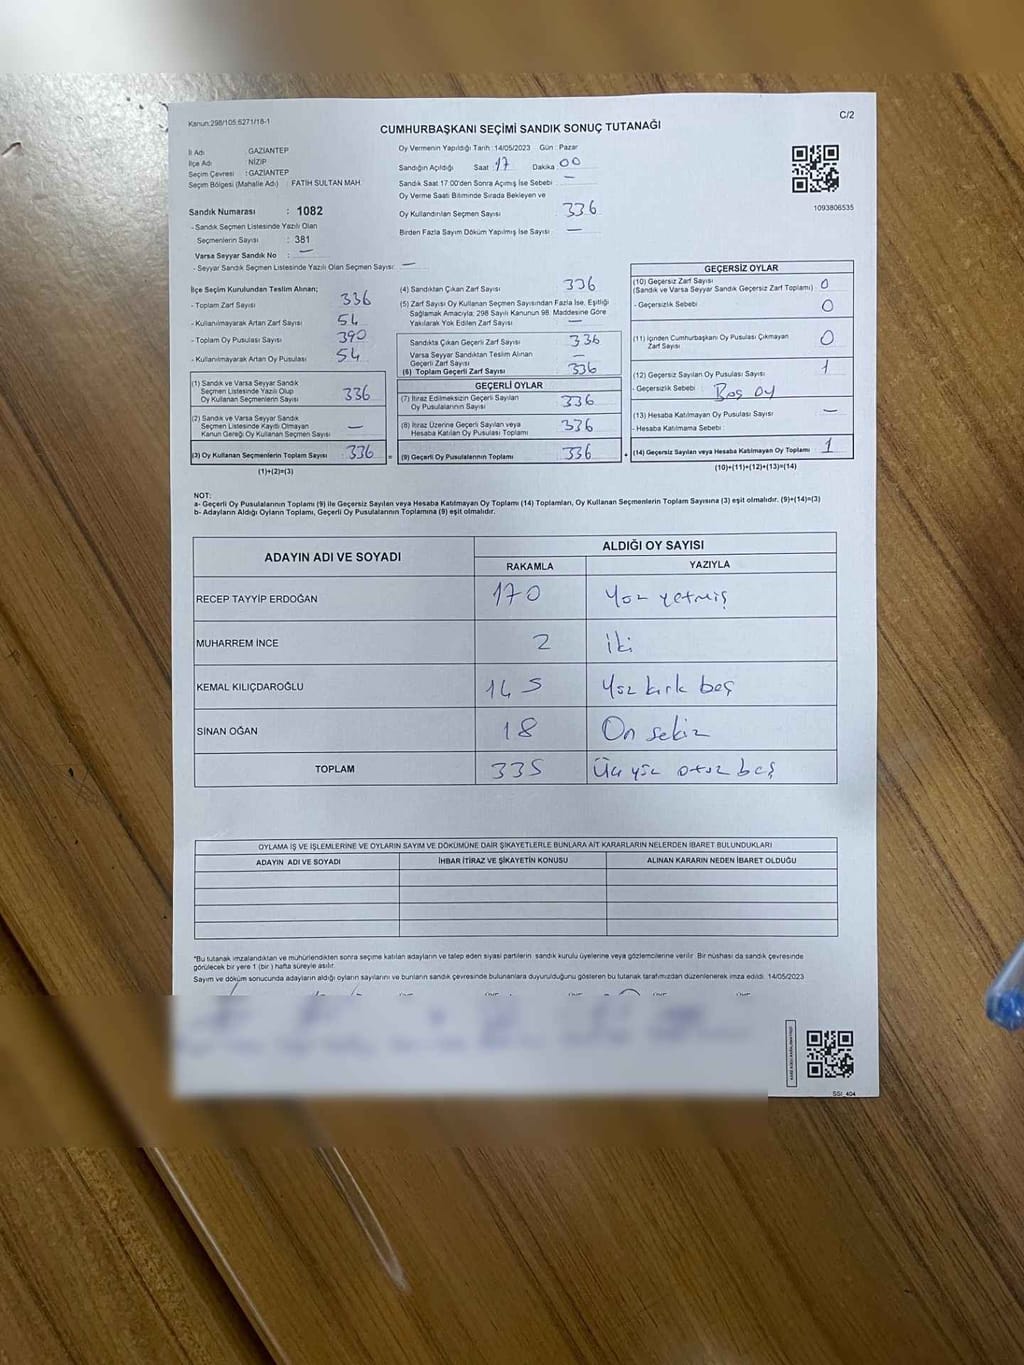 Kanun:298/105.6271/18-1
C/2
CUMHURBAŞKANI SEÇİMİ SANDIK SONUÇ TUTANAĞI
İl Adı : GAZİANTEP
İlçe Adı : NİZİP
Seçim Çevresi : GAZİANTEP
Seçim Bölgesi (Mahalle Adı) : FATİH SULTAN MAH.
Sandık Numarası : 1082
- Sandık Seçmen Listesinde Yazılı Olan
Seçmenlerin Sayısı : 381
Varsa Seyyar Sandık No : —
- Seyyar Sandık Seçmen Listesinde Yazılı Olan Seçmen Sayısı: —
Oy Vermenin Yapıldığı Tarih :14/05/2023 Gün : Pazar
Sandığın Açıldığı Saat : 17 Dakika : 00
Sandık Saat 17:00'den Sonra Açımış İse Sebebi : —
Oy Verme Saati Bitiminde Sırada Bekleyen ve
Oy Kullandırılan Seçmen Sayısı : 336
Birden Fazla Sayım Döküm Yapılmış İse Sayısı : —
1093806535
İlçe Seçim Kurulundan Teslim Alınan;
- Toplam Zarf Sayısı : 336
- Kullanılmayarak Artan Zarf Sayısı : 54
- Toplam Oy Pusulası Sayısı : 390
- Kullanılmayarak Artan Oy Pusulası : 54
(1) Sandık ve Varsa Seyyar Sandık
Seçmen Listesinde Yazılı Olup
Oy Kullanan Seçmenlerin Sayısı : 336
(2) Sandık ve Varsa Seyyar Sandık
Seçmen Listesinde Kayıtlı Olmayan
Kanun Gereği Oy Kullanan Seçmen Sayısı : —
(3) Oy Kullanan Seçmenlerin Toplam Sayısı : 336
(1)+(2)=(3)
(4) Sandıktan Çıkan Zarf Sayısı : 336
(5) Zarf Sayısı Oy Kullanan Seçmen Sayısından Fazla İse, Eşitliği
Sağlamak Amacıyla; 298 Sayılı Kanunun 98. Maddesine Göre
Yakılarak Yok Edilen Zarf Sayısı : —
Sandıkta Çıkan Geçerli Zarf Sayısı : 336
Varsa Seyyar Sandıktan Teslim Alınan
Geçerli Zarf Sayısı : —
(6) Toplam Geçerli Zarf Sayısı : 336
GEÇERLİ OYLAR
(7) İtiraz Edilmeksizin Geçerli Sayılan
Oy Pusulalarının Sayısı : 336
(8) İtiraz Üzerine Geçerli Sayılan veya
Hesaba Katılan Oy Pusulası Toplamı : 336
= (9) Geçerli Oy Pusulalarının Toplamı : 336
GEÇERSİZ OYLAR
(10) Geçersiz Zarf Sayısı
(Sandık ve Varsa Seyyar Sandık Geçersiz Zarf Toplamı) : 0
- Geçersizlik Sebebi : 0
(11) İçinden Cumhurbaşkanı Oy Pusulası Çıkmayan
Zarf Sayısı : 0
(12) Geçersiz Sayılan Oy Pusulası Sayısı : 1
- Geçersizlik Sebebi : Boş oy
(13) Hesaba Katılmayan Oy Pusulası Sayısı : —
- Hesaba Katılmama Sebebi :
+ (14) Geçersiz Sayılan veya Hesaba Katılmayan Oy Toplamı : 1
(10)+(11)+(12)+(13)=(14)
NOT:
a- Geçerli Oy Pusulalarının Toplamı (9) ile Geçersiz Sayılan veya Hesaba Katılmayan Oy Toplamı (14) Toplamları, Oy Kullanan Seçmenlerin Toplam Sayısına (3) eşit olmalıdır. (9)+(14)=(3)
b- Adayların Aldığı Oyların Toplamı, Geçerli Oy Pusulalarının Toplamına (9) eşit olmalıdır.
ADAYIN ADI VE SOYADI ALDIĞI OY SAYISI
RAKAMLA YAZIYLA
RECEP TAYYİP ERDOĞAN 170 Yüz yetmiş
MUHARREM İNCE 2 iki
KEMAL KILIÇDAROĞLU 145 Yüz kırk beş
SİNAN OĞAN 18 On sekiz
TOPLAM 335 Üç yüz otuz beş
OYLAMA İŞ VE İŞLEMLERİNE VE OYLARIN SAYIM VE DÖKÜMÜNE DAİR ŞİKAYETLERLE BUNLARA AİT KARARLARIN NELERDEN İBARET BULUNDUKLARI
ADAYIN ADI VE SOYADI İHBAR İTİRAZ VE ŞİKAYETİN KONUSU ALINAN KARARIN NEDEN İBARET OLDUĞU
*Bu tutanak imzalandıktan ve mühürlendikten sonra seçime katılan adayların ve talep eden siyasi partilerin sandık kurulu üyelerine veya gözlemcilerine verilir. Bir nüshası da sandık çevresinde
görülecek bir yere 1 (bir ) hafta süreyle asılır.
Sayım ve döküm sonucunda adayların aldığı oyların sayılarını ve bunların sandık çevresinde bulunanlara duyurulduğunu gösteren bu tutanak tarafımızdan düzenlenerek imza edildi. 14/05/2023
SSI_404